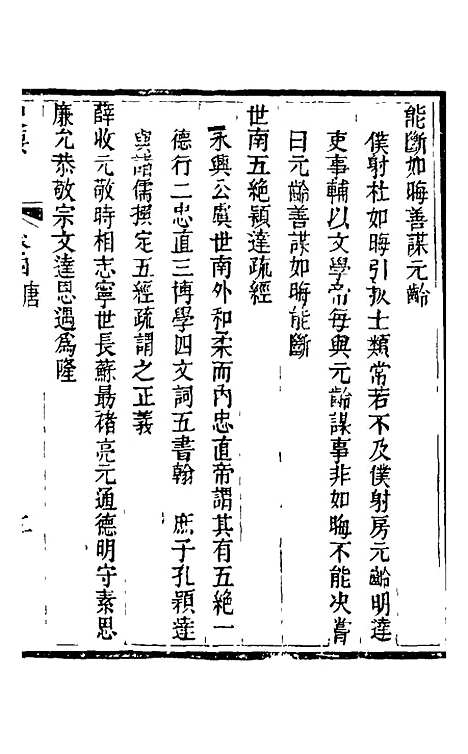 能斷如晦善謀元齡
僕射杜如晦引拔士類常若不及僕射房元齡明達
吏事輔以文學帝每與元齡謀事非如晦不能決嘗
曰元齡善謀如晦能斷
世南五絕穎達疏經
永興公虞世南外和柔而內忠直帝謂其有五絕一
德行二忠直三博學四文詞五書翰　庶子孔穎達
與諸儒撰定五經疏謂之正義
薛收元敬時相志寧世長蘇勗褚亮元通德明守素思
廉允恭敬宗文達思遇爲隆
唐